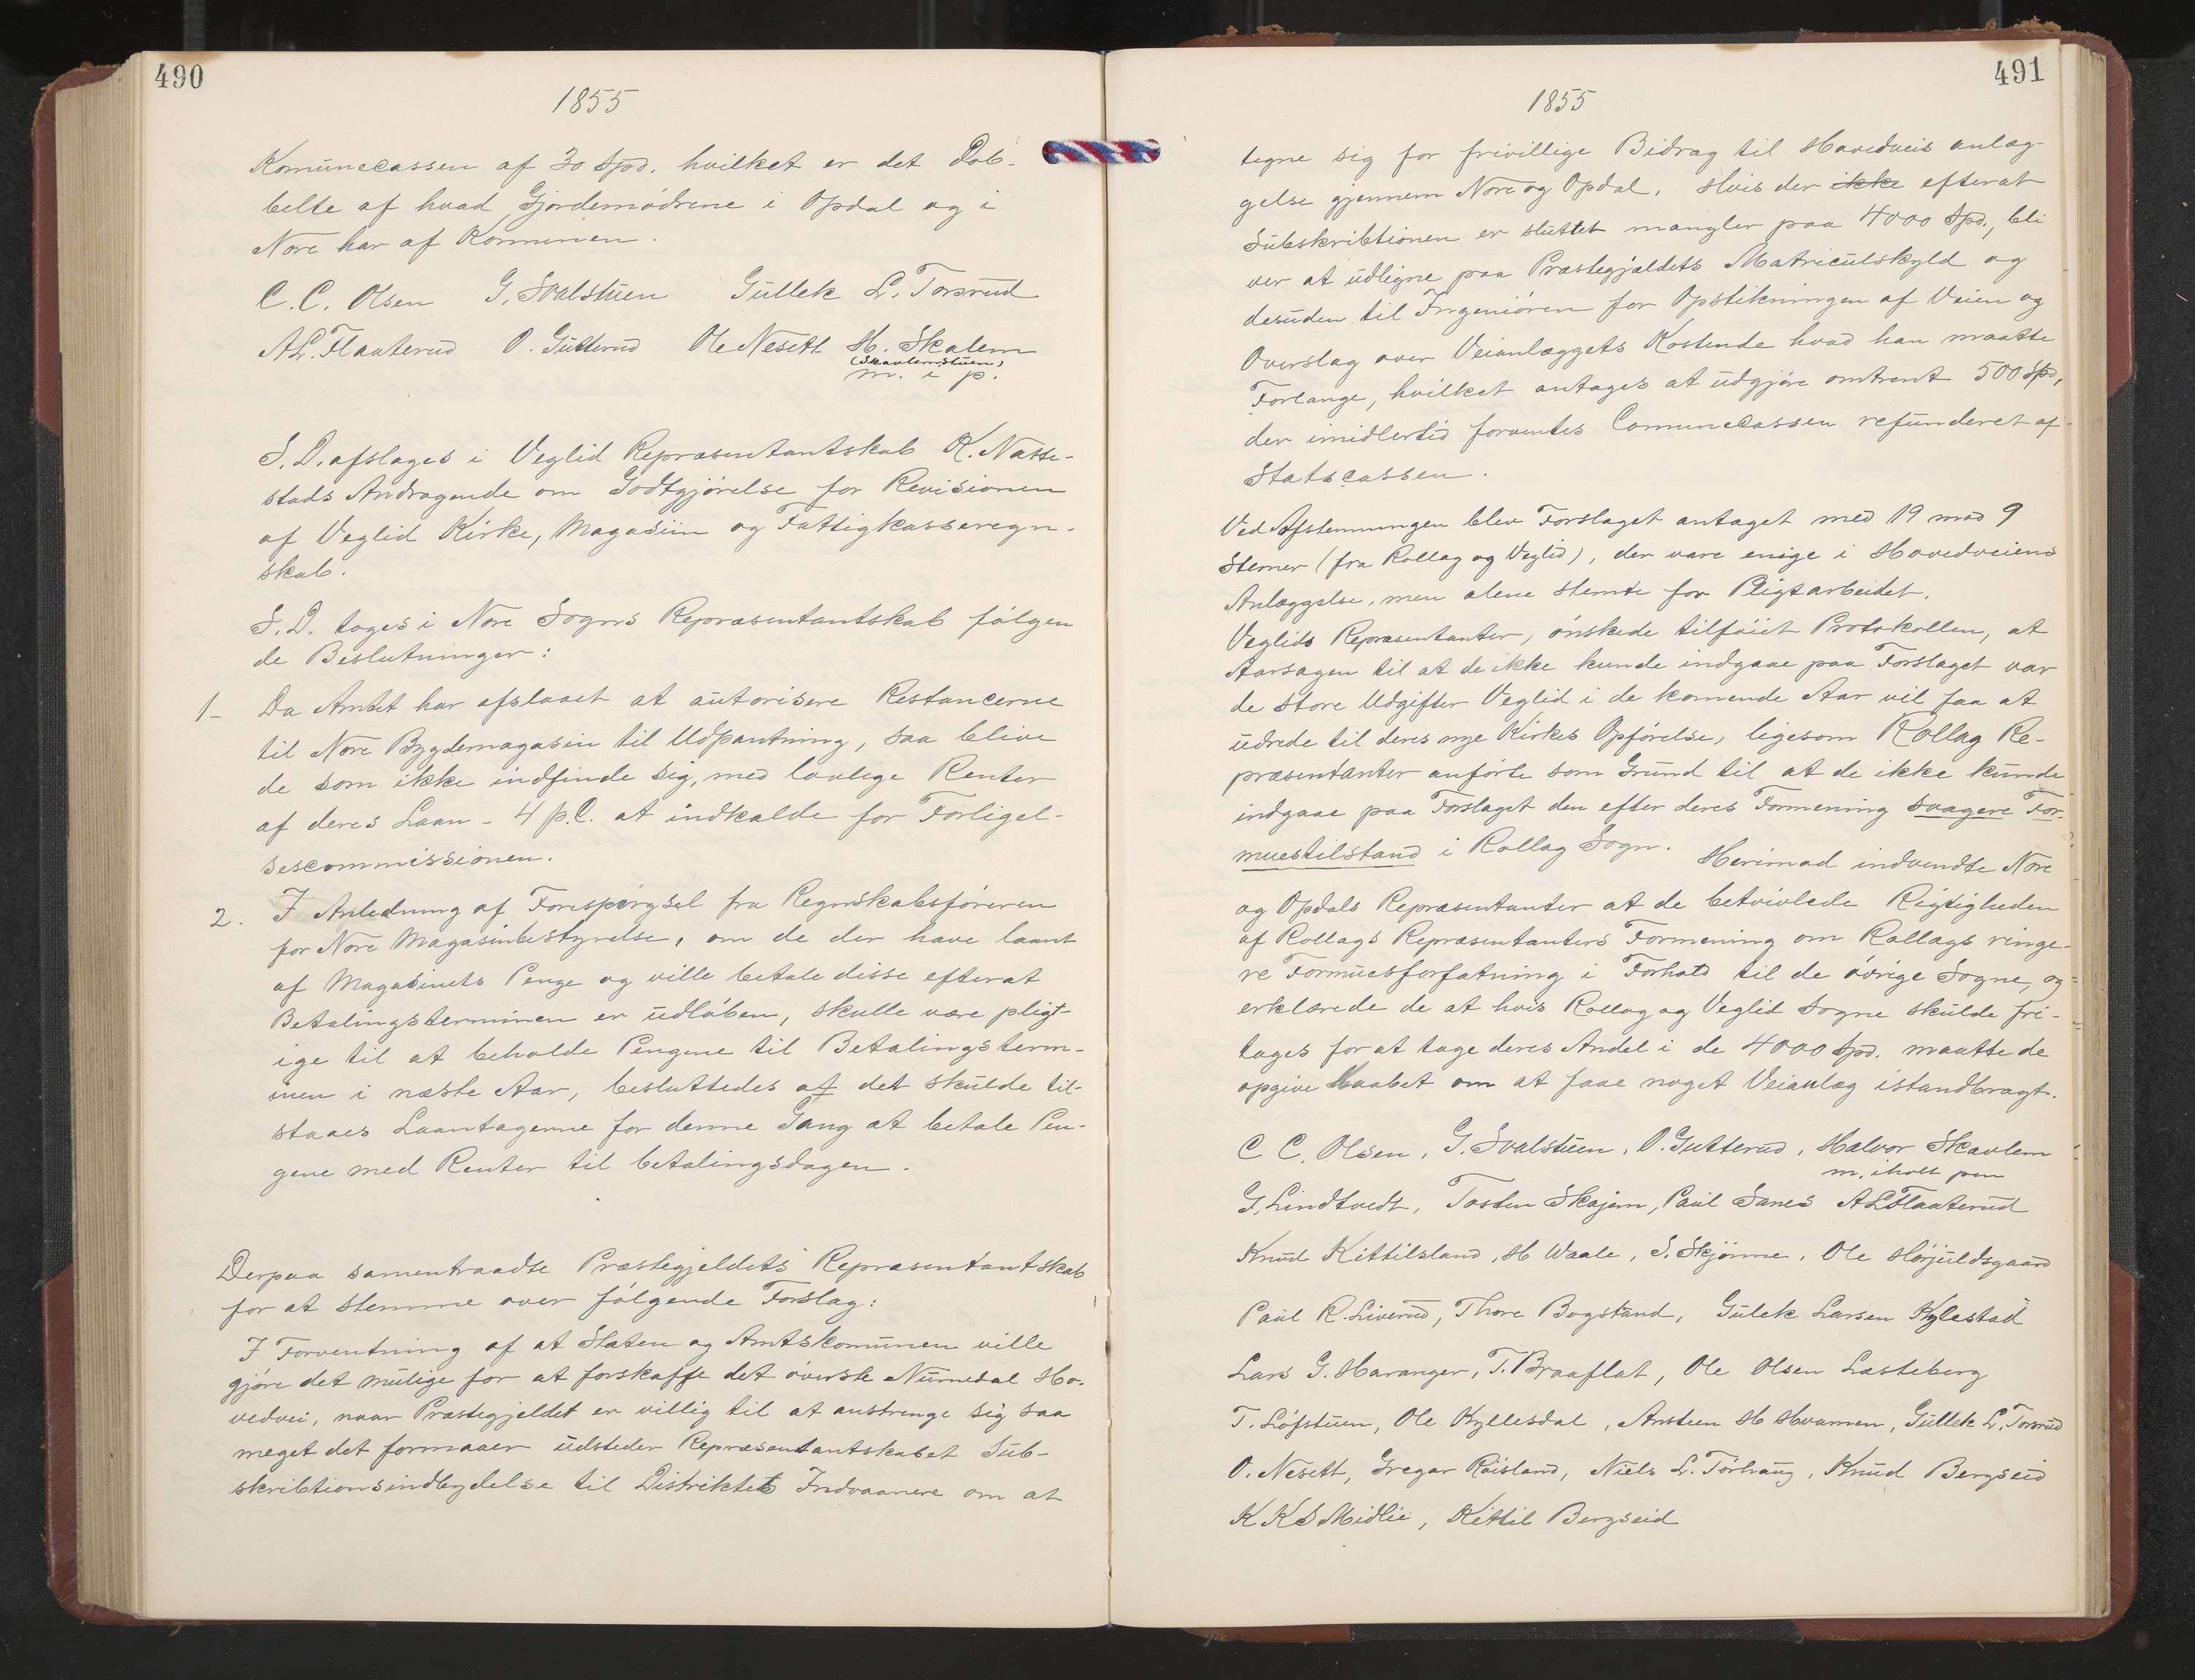 490
1855
Komunecassen af 30 Spd. hvilket er det Dob-
belte af hvad Gjordemødrene i Opdal og i
Nore har af Komunen.
C. C. Olsen G. Svalstuen Gullek L. Torsrud
A L. Flaaterud O. Gutterud Ole Nesett H. Skalem
(Skavlemstuen)
m. i p.
S. D. afslages i Veglid Repræsentantskab K. Natte-
stads Andragende om Godtgjørelse for Revisionen
af Veglid Kirke, Magasiin og Fattigkasseregn-
skab.
S. D. toges i Nore Sogns Repræsentantskab følgen
de Beslutninger:
1- Da Amtet har afslaaet at autorisere Restancerne
til Nore Bygdemagasin til Udpantning, saa blive
de som ikke indfinde sig, med lovlige Renter
af deres Laan - 4 p.C. at indkalde for Forligel-
sescommissionen.
2. I Anledning af Forespørgsel fra Regnskabsføreren
for Nore Magasinbestyrelse, om de der have laant
af Magasinets Penge og ville betale disse efterat
Betalingsterminen er udløben, skulle være pligt-
ige til at beholde Pengene til Betalingsterm-
inen i næste Aar, besluttedes at det skulde til-
staaes Laantagerne for denne Gang at betale Pen-
gene med Renter til betalingsdagen.
Derpaa samentraadte Præstegjeldets Repræsentantskab
for at stemme over følgende Forslag:
I Forventning af at Staten og Amtskomunen ville
gjøre det mulige for at forskaffe det øverste Numedal Ho-
vedvei, naar Præstegjeldet er villig til at anstrenge sig saa
meget det formaaer udsteder Repræsentantskabet Sub-
skribtionsindbydelse til Distriktets Indvaanere om at
491
1855
tegne sig for frivillige Bidrag til Hovedveis anlæg-
gelse gjennem Nore og Opdal. Hvis der ikke efterat
Subskribtionen er sluttet mangler paa 4000 Spd., bli
ver at udligne paa Præstegjældets Matriculskyld og
desuden til Ingeniøren for Opstikningen af Veien og
Overslag over Veianlæggets Kostende hvad han maatte
Forlange, hvilket antages at udgjøre omtrent 500 Spd,
der imidlertid forventes Comunecassen refunderet af
Statscassen.
Ved Afstemningen blev Forslaget antaget med 19 mod 9
Stemer (fra Rollag og Veglid), der vare enige i Hovedveiens
Anlæggelse, men alene stemte for Pligtarbeidet.
Veglids Repræsentanter, ønskede tilføiet Protokollen, at
Aarsagen til at de ikke kunde indgaae paa Forslaget var
de store Udgifter Veglid i de komende Aar vil faa at
udrede til deres nye Kirkes Opførelse, ligesom Rollag Re-
præsentanter anførte som Grund til at de ikke kunde
indgaae paa Forslaget den efter deres Formening svagere For-
muestilstand i Rollag Sogn. Herimod indvendte Nore
og Opdals Repræsentanter at de betvivlede Rigtigheden
af Rollags Repræsentanters Formening om Rollags ringe-
re Formuesforfatning i Forhold til de øvrige Sogne, og
erklærede de at hvis Rollag og Veglid Sogne skulde fri-
tages for at tage deres Andel i de 4000 Spd. maatte de
opgive Haabet om at faae noget Veianlæg istandbragt.
C C. Olsen, G. Svalstuen, O. Gutterud, Halvor Skavlem
m. iholt pen
G. Lindtvedt, Tosten Skajem, Paul Sanes A L Flaaterud
Knud Kittilsland, H Waale, S. Skjønne, Ole Hørjuldsgaard
Paul R. Liverud, Thore Bogstrand, Gulek Larsen Kylestad
Lars G. Haranger, T. Braaflat, Ole Olsen Lasteberg
T. Løfstuen, Ole Kyllesdal, Ansteen H Hvamen, Gullek L. Torsrud
O. Nesett, Gregar Røisland, Niels L. Torhaug, Knud Bergseid
K K S Midlie, Kittil Bergseid